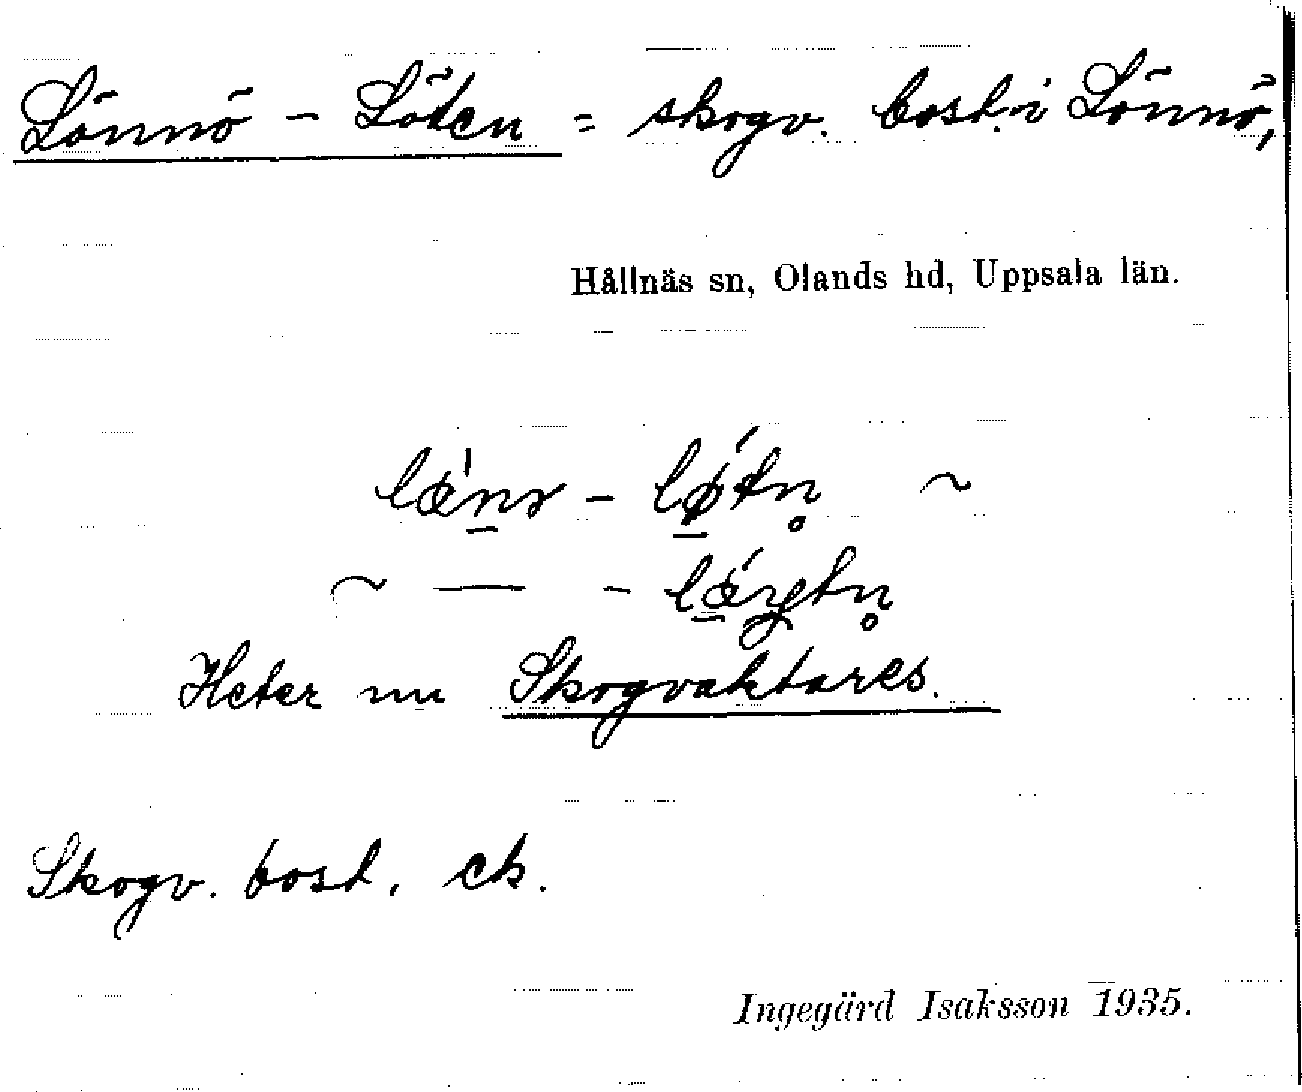 Lönnö - Löten = skogv. bost. i Lönnö,
Hållnäs sn, Olands hd, Uppsala län.
Heter nu Skogvaktares.
Skogv. bost. ek.
Ingegärd Isaksson 1935.